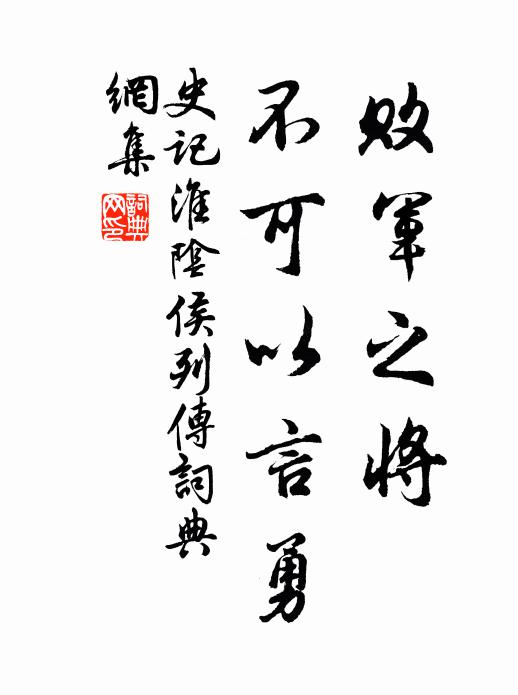 敗軍之將
不可以言勇
史記淮陰侯列傳詞典
網集
詞典
网印